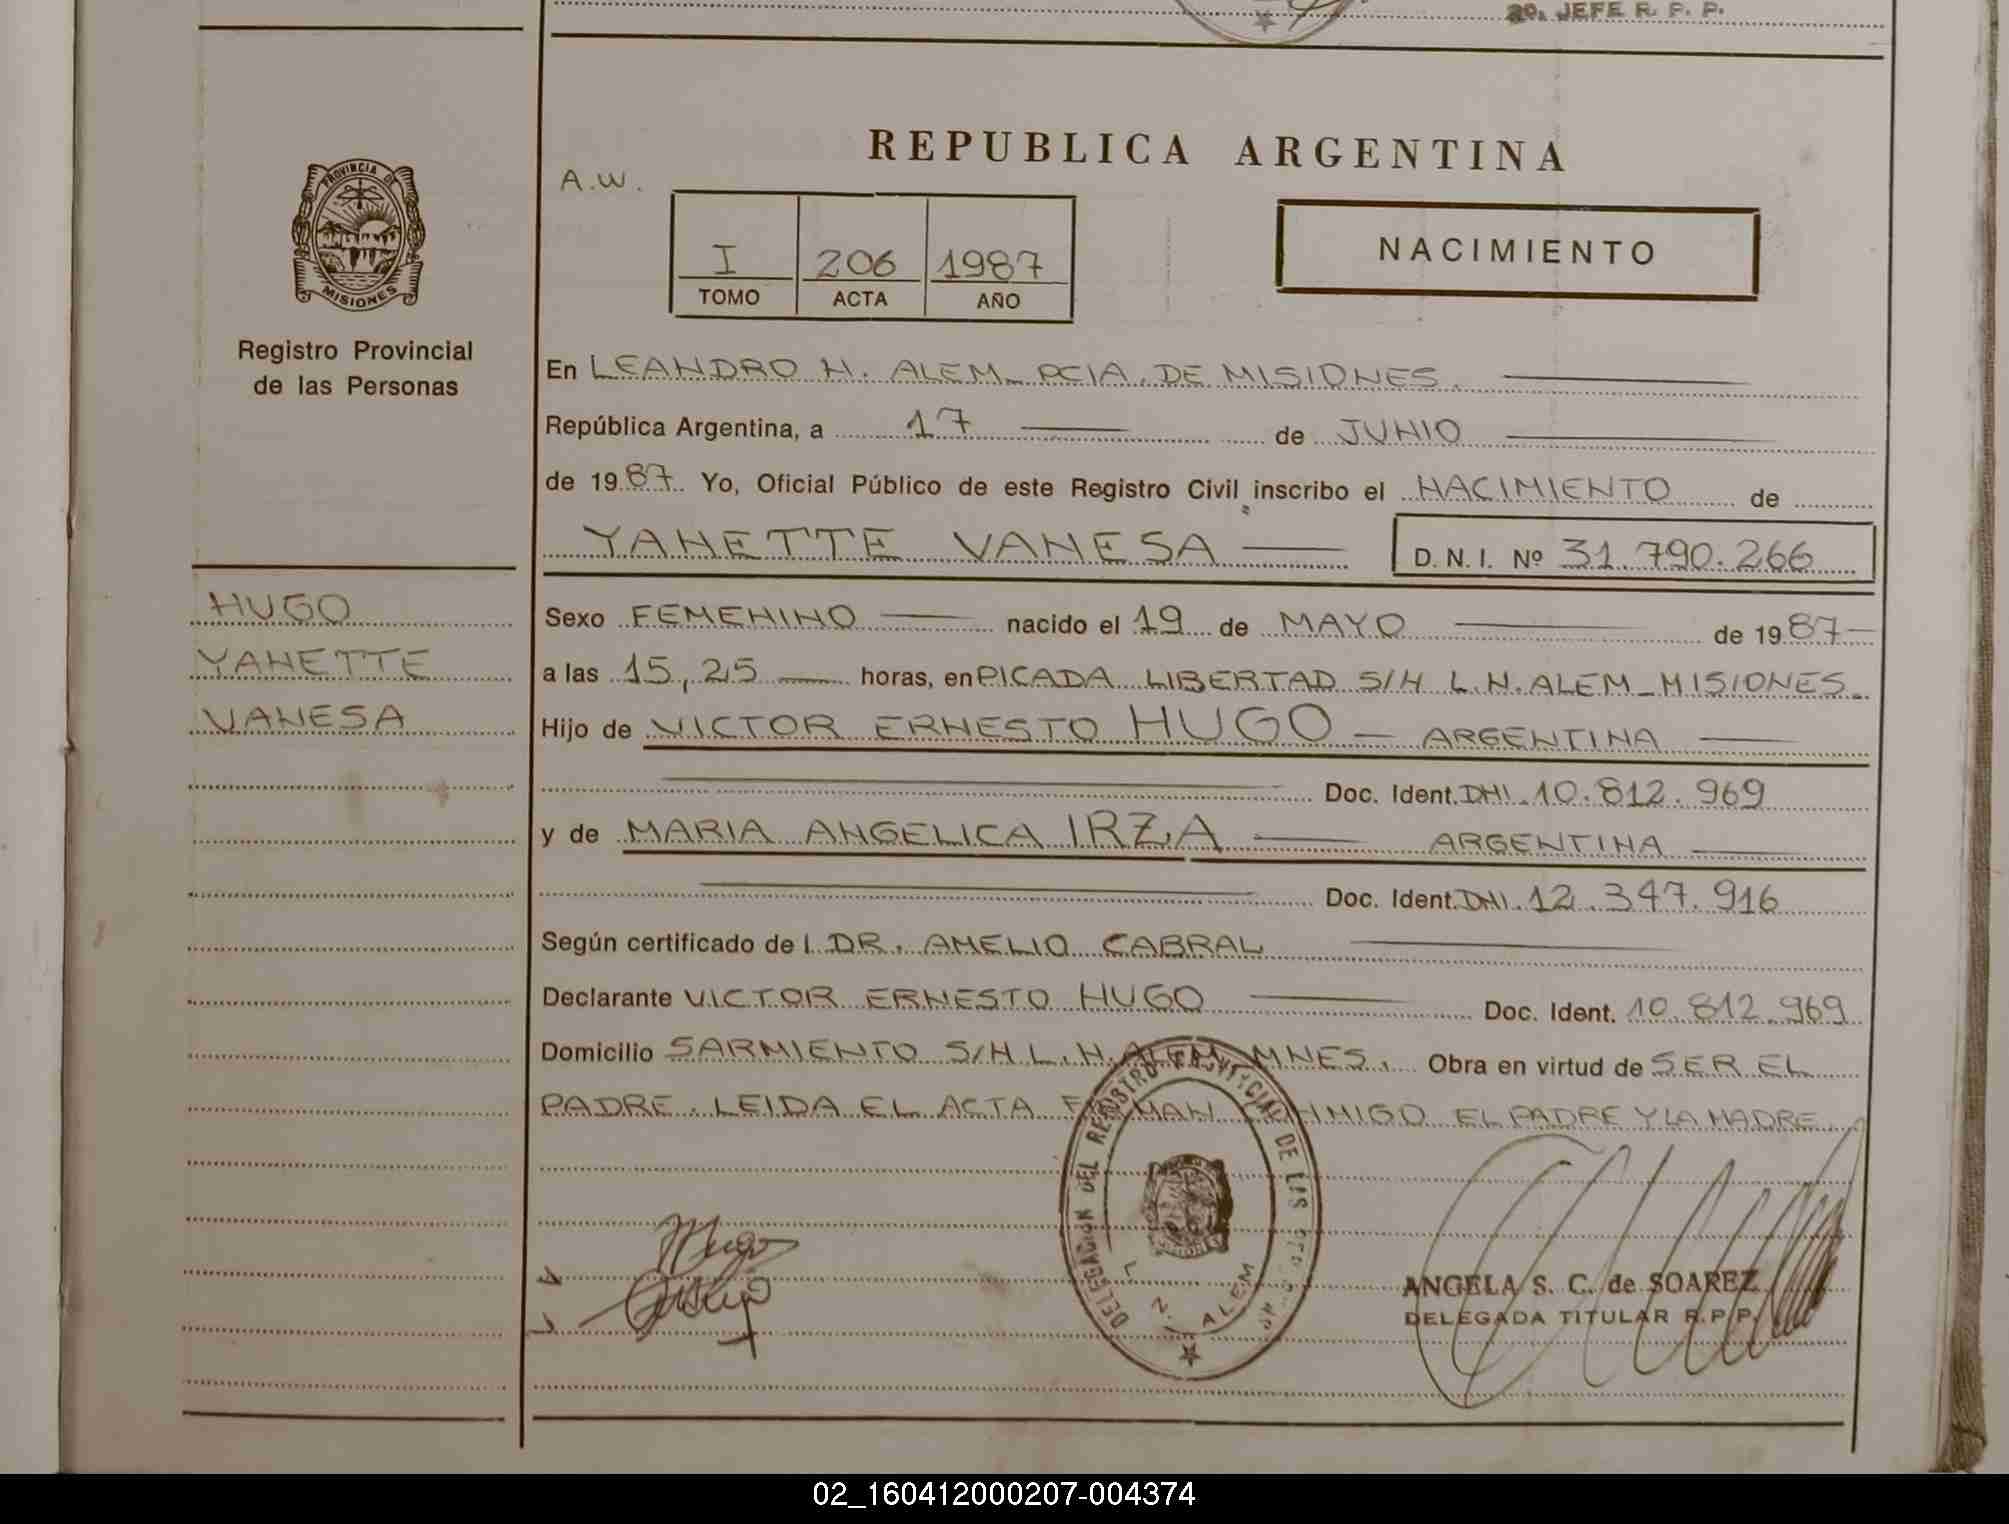 2o. JEFE R. P. P.
REPUBLICA ARGENTINA
A.W.
PROVINCIA DE
MISIONES
I 206 1987
TOMO ACTA AÑO
NACIMIENTO
Registro Provincial
de las Personas
En LEANDRO N. ALEM_ PCIA. DE MISIONES.
República Argentina, a 17 de JUNIO
de 1987. Yo, Oficial Público de este Registro Civil inscribo el NACIMIENTO de
YANETTE VANESA
D. N. I. Nº 31.790.266
HUGO
YANETTE
VANESA
Sexo FEMENINO nacido el 19 de MAYO de 1987
a las 15,25 horas, en PICADA LIBERTAD S/N L.N. ALEM_MISIONES.
Hijo de VICTOR ERNESTO HUGO — ARGENTINA
Doc. Ident. DNI. 10.812.969
y de MARIA ANGELICA IRZA ARGENTINA
Doc. Ident. DNI. 12.347.916
Según certificado de l DR. AMELIO CABRAL
Declarante VICTOR ERNESTO HUGO Doc. Ident. 10.812.969
Domicilio SARMIENTO S/N L.N. ALEM MNES. Obra en virtud de SER EL
PADRE. LEIDA EL ACTA FIRMAN CONMIGO EL PADRE Y LA MADRE.
Hugo
DELEGACION DEL REGISTRO PROVINCIAL DE LAS
MISIONES
L. N. ALEM
ANGELA S. C. de SOAREZ
DELEGADA TITULAR R.P.P.
02_160412000207-004374